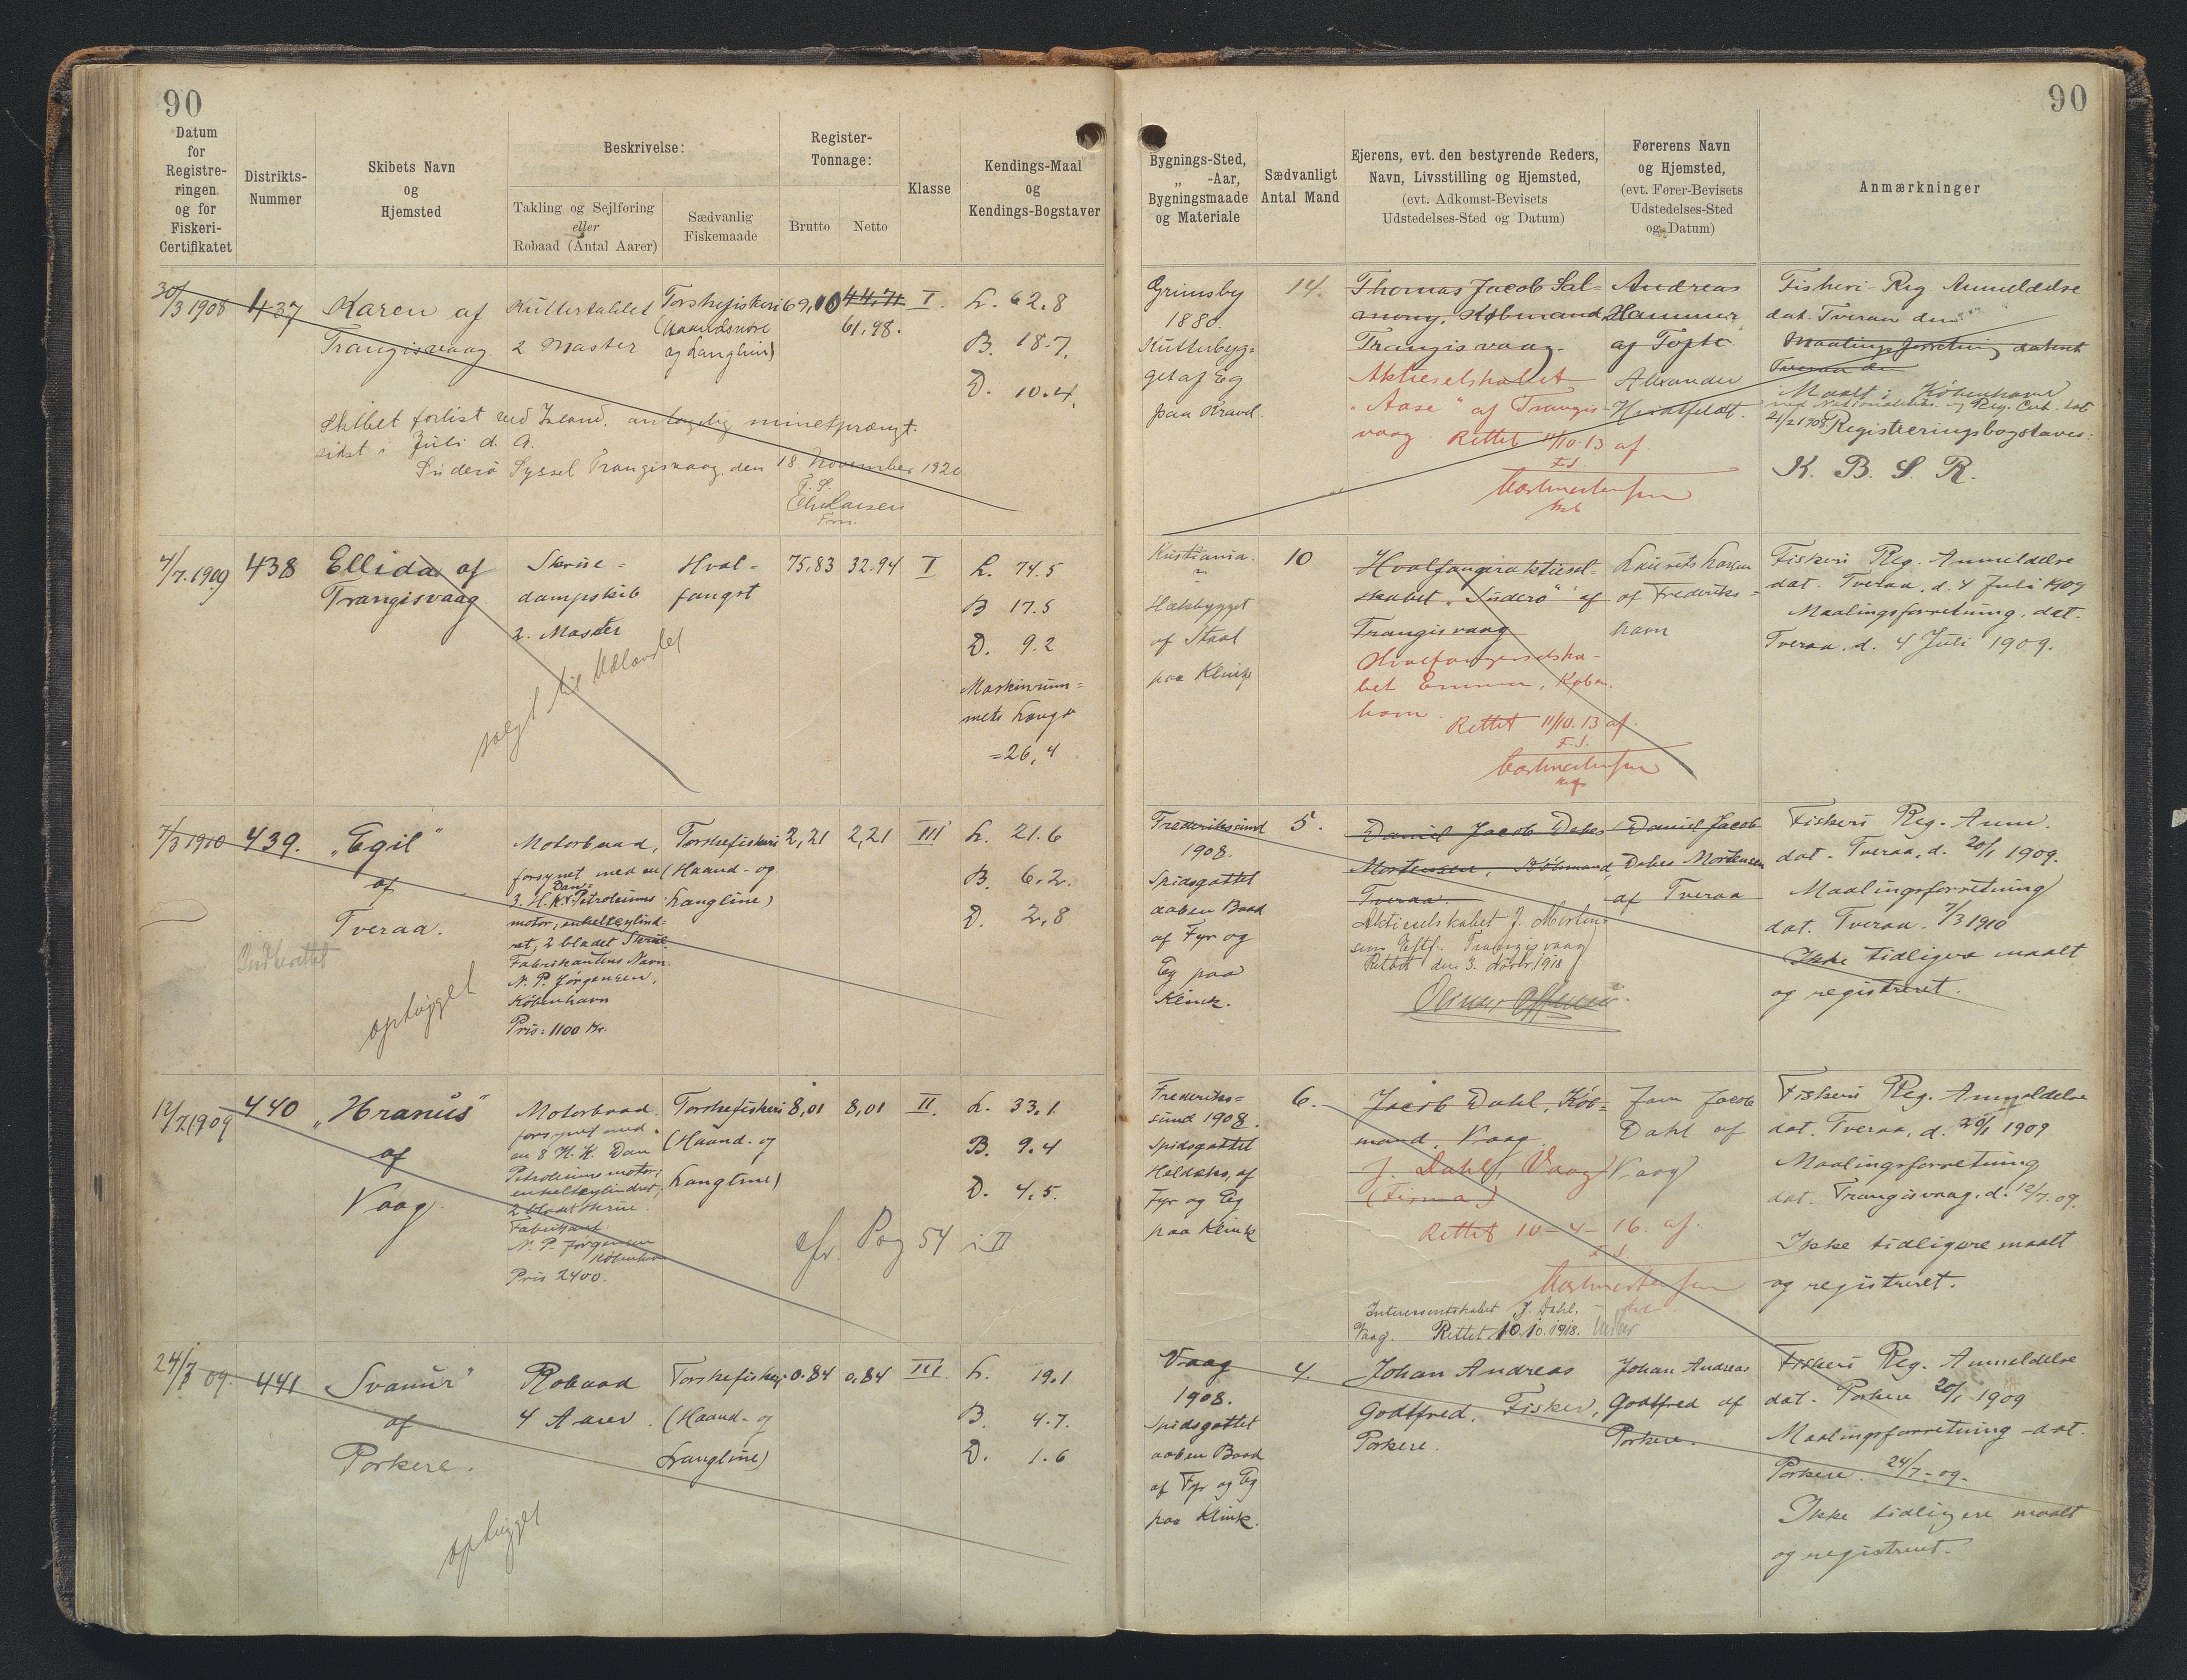 90
90
Datum
for
Registre-
ringen
og for
Fiskeri-
Certifikatet
Distrikts-
Nummer
Skibets Navn
og
Hjemsted
Beskrivelse:
Takling og Sejlføring
eller
Robaad (Antal Aarer)
Sædvanlig
Fiskemaade
Register-
Tonnage:
Brutto
Netto
Klasse
Kendings-Maal
og
Kendings-Bogstaver
Bygnings-Sted,
„ -Aar,
Bygningsmaade
og Materiale
Sædvanligt
Antal Mand
Ejerens, evt. den bestyrende Reders,
Navn, Livsstilling og Hjemsted,
(evt. Adkomst-Bevisets
Udstedelses-Sted og Datum)
Førerens Navn
og Hjemsted,
(evt. Fører-Bevisets
Udstedelses-Sted
og Datum)
Anmærkninger
30/3 1908
437
Karen af
Trangisvaag.
Kuttertaklet
2 Master
Torskefiskeri
(Haandsnøre
og Langline)
69,10
44,71
61,98.
I.
L. 62.8
B. 18.7.
D. 10.4.
Skibet forlist ved Island, antagelig minesprængt.
sidst i Juli d. A.
Suderø Syssel Trangisvaag, den 18. November 1920
F. S.
Fm.
Grimsby
1880.
Kutterbyg-
get af Eg
paa Kravel.
14.
Thomas Jacob Sal-
mony, Købmand,
Trangisvaag.
Aktieselskabet
"Aase" af Trangis-
vaag. Rettet 11/10-13 af
F.S.
Andreas
Hammer
af Tofte
Alexander
Fiskeri-Reg. Anmeldelse
dat. Tveraa den
Maalingsforretning dateret
Tveraa d.
Maalt i København
21/2 1908 Registreringsbogstaver:
K. B. S. R.
4/7.1909
438
Ellida af
Trangisvaag
Skrue-
dampskib
2. Master
Hval-
fangst
75.83
32.94
I
L. 74.5
B 17.5
D. 9.2
Maskinrum-
mets Længde
=26,4
solgt til Udlandet
Kristiania.
Hækbygget
af Staal
paa Klink
10
Hvalfangeraktiesel-
skabet "Suderø" af
Trangisvaag
Hvalfangerselska-
bet Emma, Køben-
havn.
Rettet 11/10.13 af.
F.S.
Laurits Larsen
af Frederiks-
havn
Fiskeri Reg. Anmeldelse
dat. Tveraa, d. 4 Juli 1909
Maalingsforretning, dat.
Tveraa, d. 4 Juli 1909.
7/3 1910
439.
"Egil"
af
Tveraa.
ophugget
Motorbaad,
forsynet med en
3. H.K. Dan-Petroleums
motor, enkeltcylind-
ret, 2 bladet Skrue.
Fabrikantens Navn:
N. P. Jørgensen,
København
Pris: 1100 Kr.
Torskefiskeri
(Haand- og
Langline)
2,21
2,21
III
L. 21.6
B. 6.2.
D. 2,8
Frederikssund
1908.
Spidsgattet
aaben Baad
af Fyr og
Eg paa
Klink.
5.
Daniel Jacob Debes
Mortensen, Købmand,
Tveraa.
Aktieselskabet J. Morten-
sens Eftf. Trangisvaag
Rettet den 3. 1918
Daniel Jacob
Debes Mortensen
af Tveraa
Fiskeri Reg. Anm.
dat. Tveraa, d. 20/1 1909.
Maalingsforretning
dat. Tveraa. 7/3 1910
Ikke tidligere maalt
og registreret.
12/7 1909
440
"Hranus"
af
Vaag.
Motorbaad.
forsynet med
en 8 H. K. Dan
Petroleumsmotor;
enkeltcylindret,
2 bladet Skrue.
Fabrikant:
N. P. Jørgensen
København
Pris 2400.
Torskefiskeri
(Haand- og
Langline)
8,01
8,01
II.
L. 33,1
B. 9.4
D. 4,5.
cfr. Pag 54 i II
Frederiks-
sund 1908.
Spidsgattet
Halvdæks, af
Fyr og Eg
paa Klink
6.
Jacob Dahl, Køb-
mand, Vaag.
J. Dahl, Vaag
(Firma)
Rettet 10-4-16. af.
F.S.
Interessentskabet J. Dahl,
Vaag. Rettet 10.10.1918.
Jacob
Dahl af
Vaag
Fiskeri Reg. Anmeldelse
dat. Tveraa, d. 20/1 1909
Maalingsforretning
dat. Trangisvaag, d. 12/7.09.
Ikke tidligere maalt
og registreret.
24/7 09.
441
Svanur"
af
Porkere.
ophugget
Robaad
4 Aarer.
Torskefiskeri
(Haand- og
Langline)
0.84
0,84
III.
L. 19.1
B. 4.7.
D. 1.6
Vaag
1908.
Spidsgattet
aaben Baad
af Fyr og Eg
paa Klink.
4.
Johan Andreas
Godtfred, Fisker,
Porkere.
Johan Andreas
Godtfred af
Porkere.
Fiskeri Reg. Anmeldelse
dat. Porkere 20/1 1909
Maalingsforretning dat.
Porkere. 24/7-09.
Ikke tidligere maalt
og registreret.